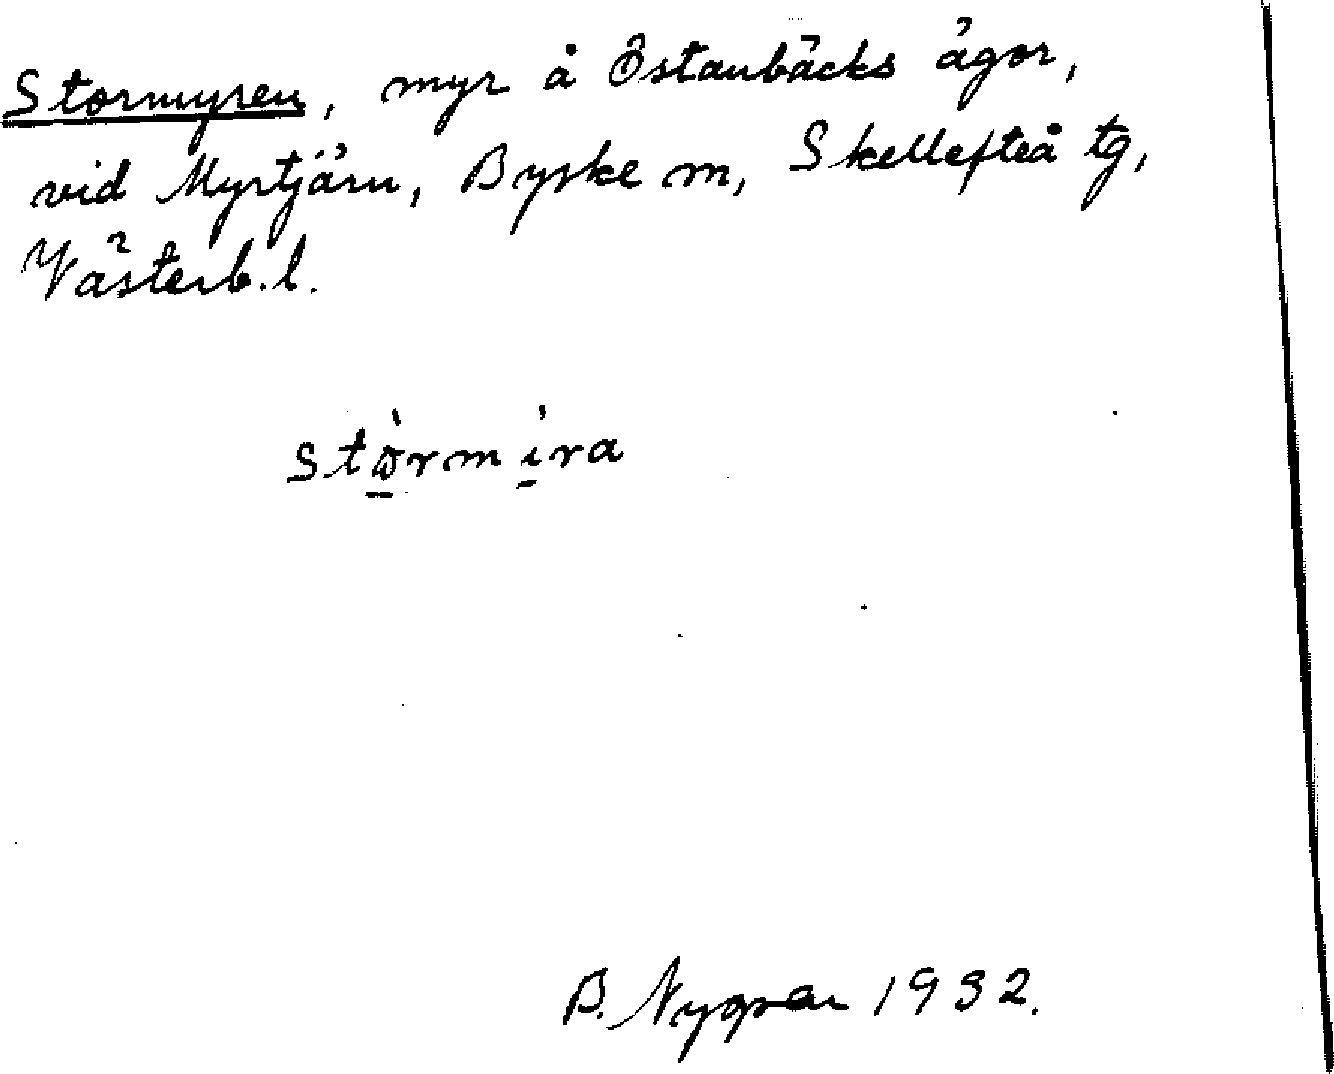 Stormyren, myr å Östanbäcks ägor,
vid Myrtjärn, Byske sn, Skellefteå tg,
Västerb. l.
stòrmíra
B. Nygren 1932.